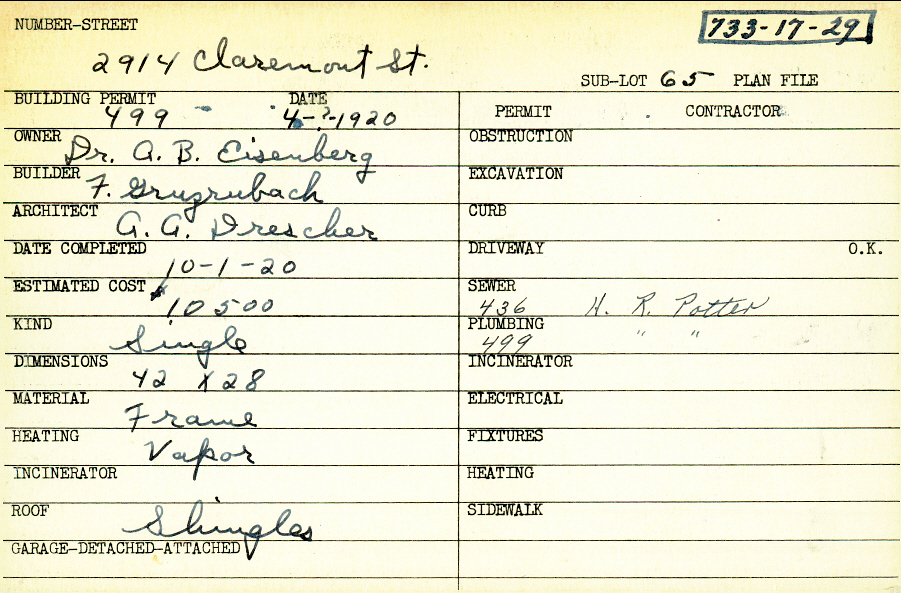 NUMBER-STREET
733-17-29
2914 Claremont St.
SUB-LOT 65 PLAN FILE
BUILDING PERMIT DATE
499 4-?-1920
PERMIT CONTRACTOR
OWNER
Dr. A. B. Eisenberg
OBSTRUCTION
BUILDER
F.
EXCAVATION
ARCHITECT
G. A. Drescher
CURB
DATE COMPLETED
10-1-20
DRIVEWAY O.K.
ESTIMATED COST
10500
SEWER
436 H. R. Potter
KIND
Single
PLUMBING
499 " "
DIMENSIONS
42 X 28
INCINERATOR
MATERIAL
Frame
ELECTRICAL
HEATING
Vapor
FIXTURES
INCINERATOR
HEATING
ROOF
Shingles
SIDEWALK
GARAGE-DETACHED-ATTACHED